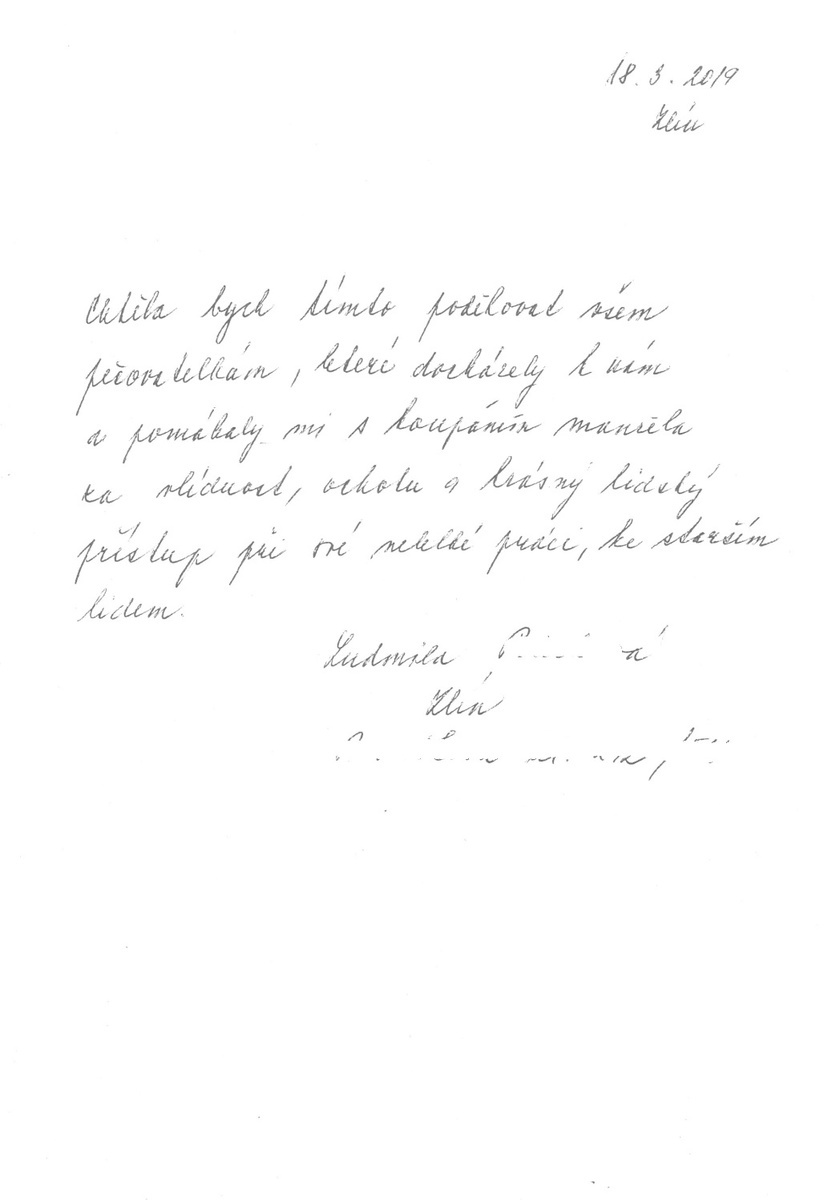 18. 3. 2019
Zlín
Chtěla bych tímto poděkovat všem
pečovatelkám, které docházely k nám
a pomáhaly mi s koupáním manžela
za vlídnost, ochotu a krásný lidský
přístup při své nelehké práci, ke starším
lidem.
Ludmila
Zlín